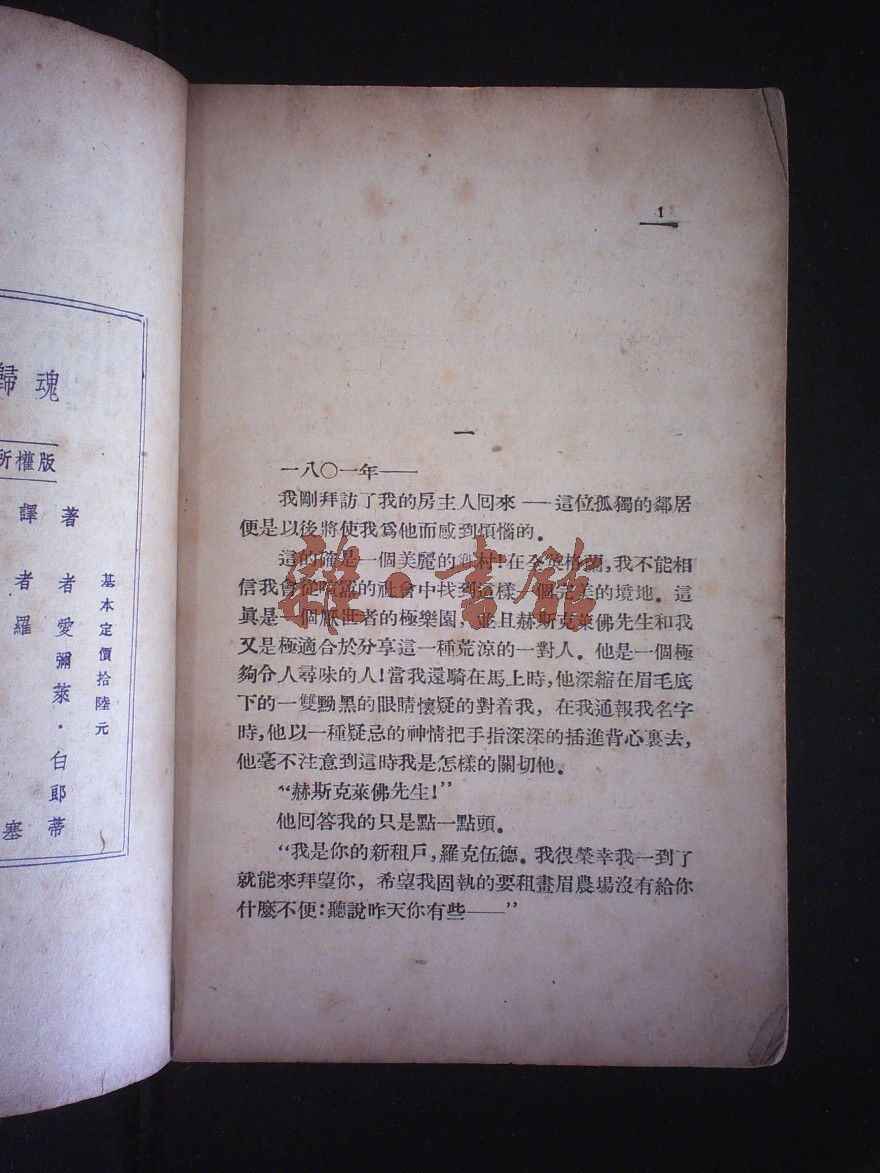 魂歸
版權所
著者愛彌萊·白郎蒂
譯者羅塞
基本定價拾陸元
1
一
一八〇一年——
我剛拜訪了我的房主人回來——這位孤獨的鄰居
便是以後將使我爲他而感到煩惱的。
這的確是一個美麗的鄉村!在全英格蘭,我不能相
信我會從喧囂的社會中找到這樣一個完美的境地。這
眞是一個厭世者的極樂園,並且赫斯克萊佛先生和我
又是極適合於分享這一種荒涼的一對人。他是一個極
夠令人尋味的人!當我還騎在馬上時,他深縮在眉毛底
下的一雙黝黑的眼睛懷疑的對着我,在我通報我名字
時,他以一種疑忌的神情把手指深深的插進背心裏去,
他毫不注意到這時我是怎樣的關切他。
“赫斯克萊佛先生!”
他回答我的只是點一點頭。
“我是你的新租戶,羅克伍德。我很榮幸我一到了
就能來拜望你,希望我固執的要租畫眉農場沒有給你
什麼不便:聽說昨天你有些——”
雜·書館